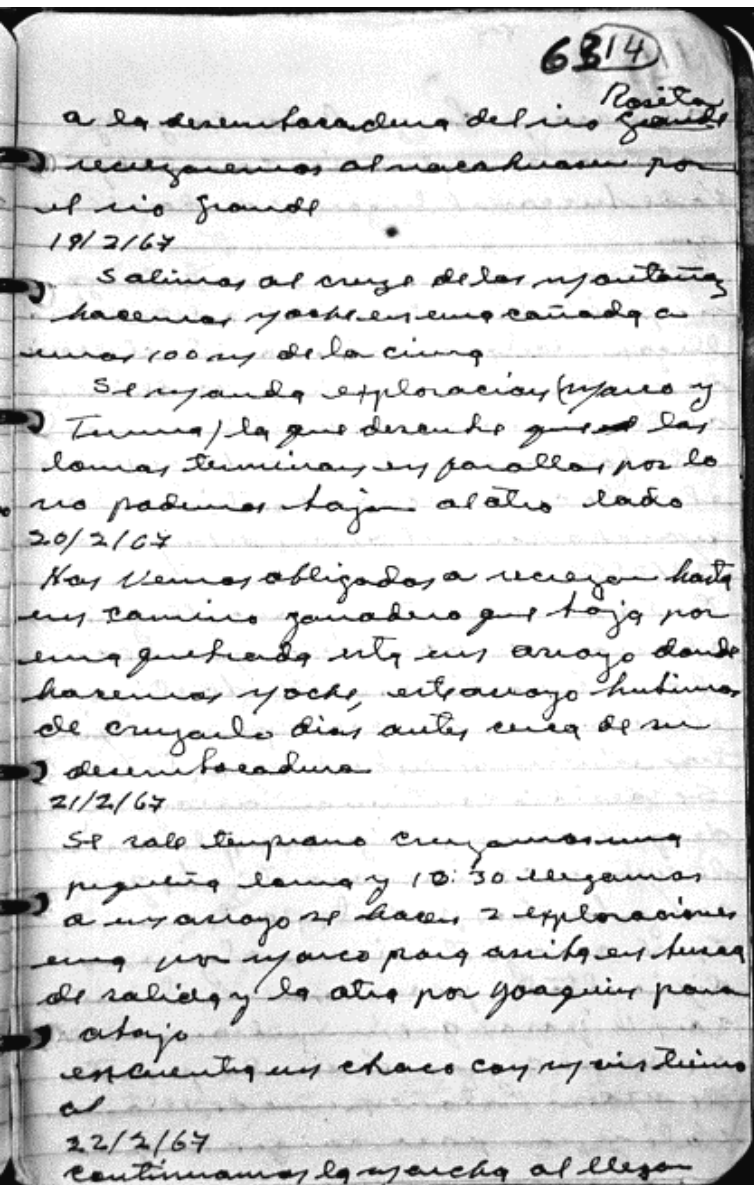 63 14
Rosita
a la desembocadura del rio Grande
recregaremos al nacahuasu por
el rio Grande
19/2/67
Salimos al cruze de las montañas
hacemos noche en una cañada a
unos 100 m de la cima
Se manda exploracion (Marco y
Tuma) la que descubre que las
lomas terminan en farallas por lo
no podemos bajar al otro lado
20/2/67
Nos vemos obligados a recregar hasta
un camino ganadero que baja por
una quebrada esta un arroyo donde
haremos noche, este arroyo hubimos
de cruzarlo dias antes cerca de su
desembocadura
21/2/67
Se sale temprano cruzamos una
pequeña loma y 10:30 llegamos
a un arroyo se hacen 2 exploraciones
una por Marco para arriba en busca
de salida y la otra por Joaquin para
abajo
encuentra un chaco con
al
22/2/67
continuamos la marcha al llegar